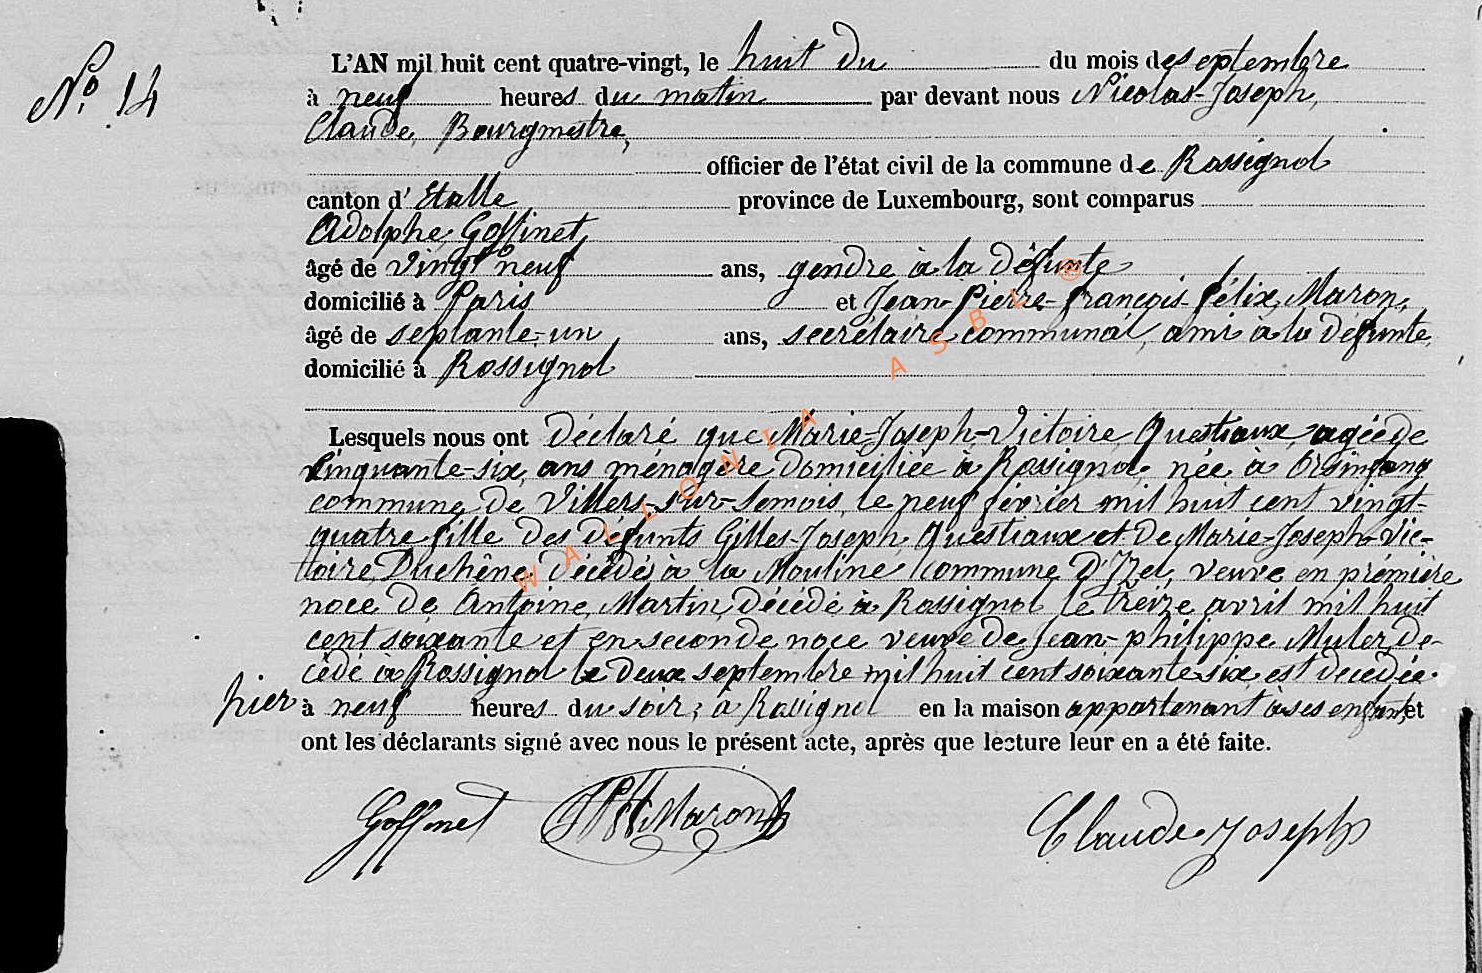 N.º 14
L'AN mil huit cent quatre-vingt, le huit du du mois de septembre
à neuf heures du matin par devant nous Nicolas-Joseph,
Claude, Bourgmestre,
officier de l'état civil de la commune de Rossignol
canton d'Etalle province de Luxembourg, sont comparus
Adolphe Goffinet,
âgé de vingt neuf ans, gendre à la défunte
domicilié à Paris et Jean-Pierre-François-Félix, Maron,
âgé de septante-un ans, secrétaire communal, ami à la défunte,
domicilié à Rossignol
Lesquels nous ont déclaré que Marie-Joseph-Victoire Questiaux, agée de
cinquante-six ans ménagère domiciliée à Rossignol née à Orsinfaing
commune de Villers-sur-Semois, le neuf février mil huit cent vingt-
quatre fille des défunts Gilles-Joseph Questiaux et de Marie-Joseph-Vic-
toire Duchêne, décédés à la Mouline commune d'Izel, veuve en prémière
noce de Antoine Martin, décédé à Rossignol le treize avril mil huit
cent soixante et en seconde noce veuve de Jean-philippe Muler, dé-
cédé à Rossignol le deux septembre mil huit cent soixante six, est décédée
hier à neuf heures du soir, à Rossignol en la maison appartenant à ses enfants, et
ont les déclarants signé avec nous le présent acte, après que lecture leur en a été faite.
Goffinet Maron Claude Joseph
WALLONIA ASBL ®